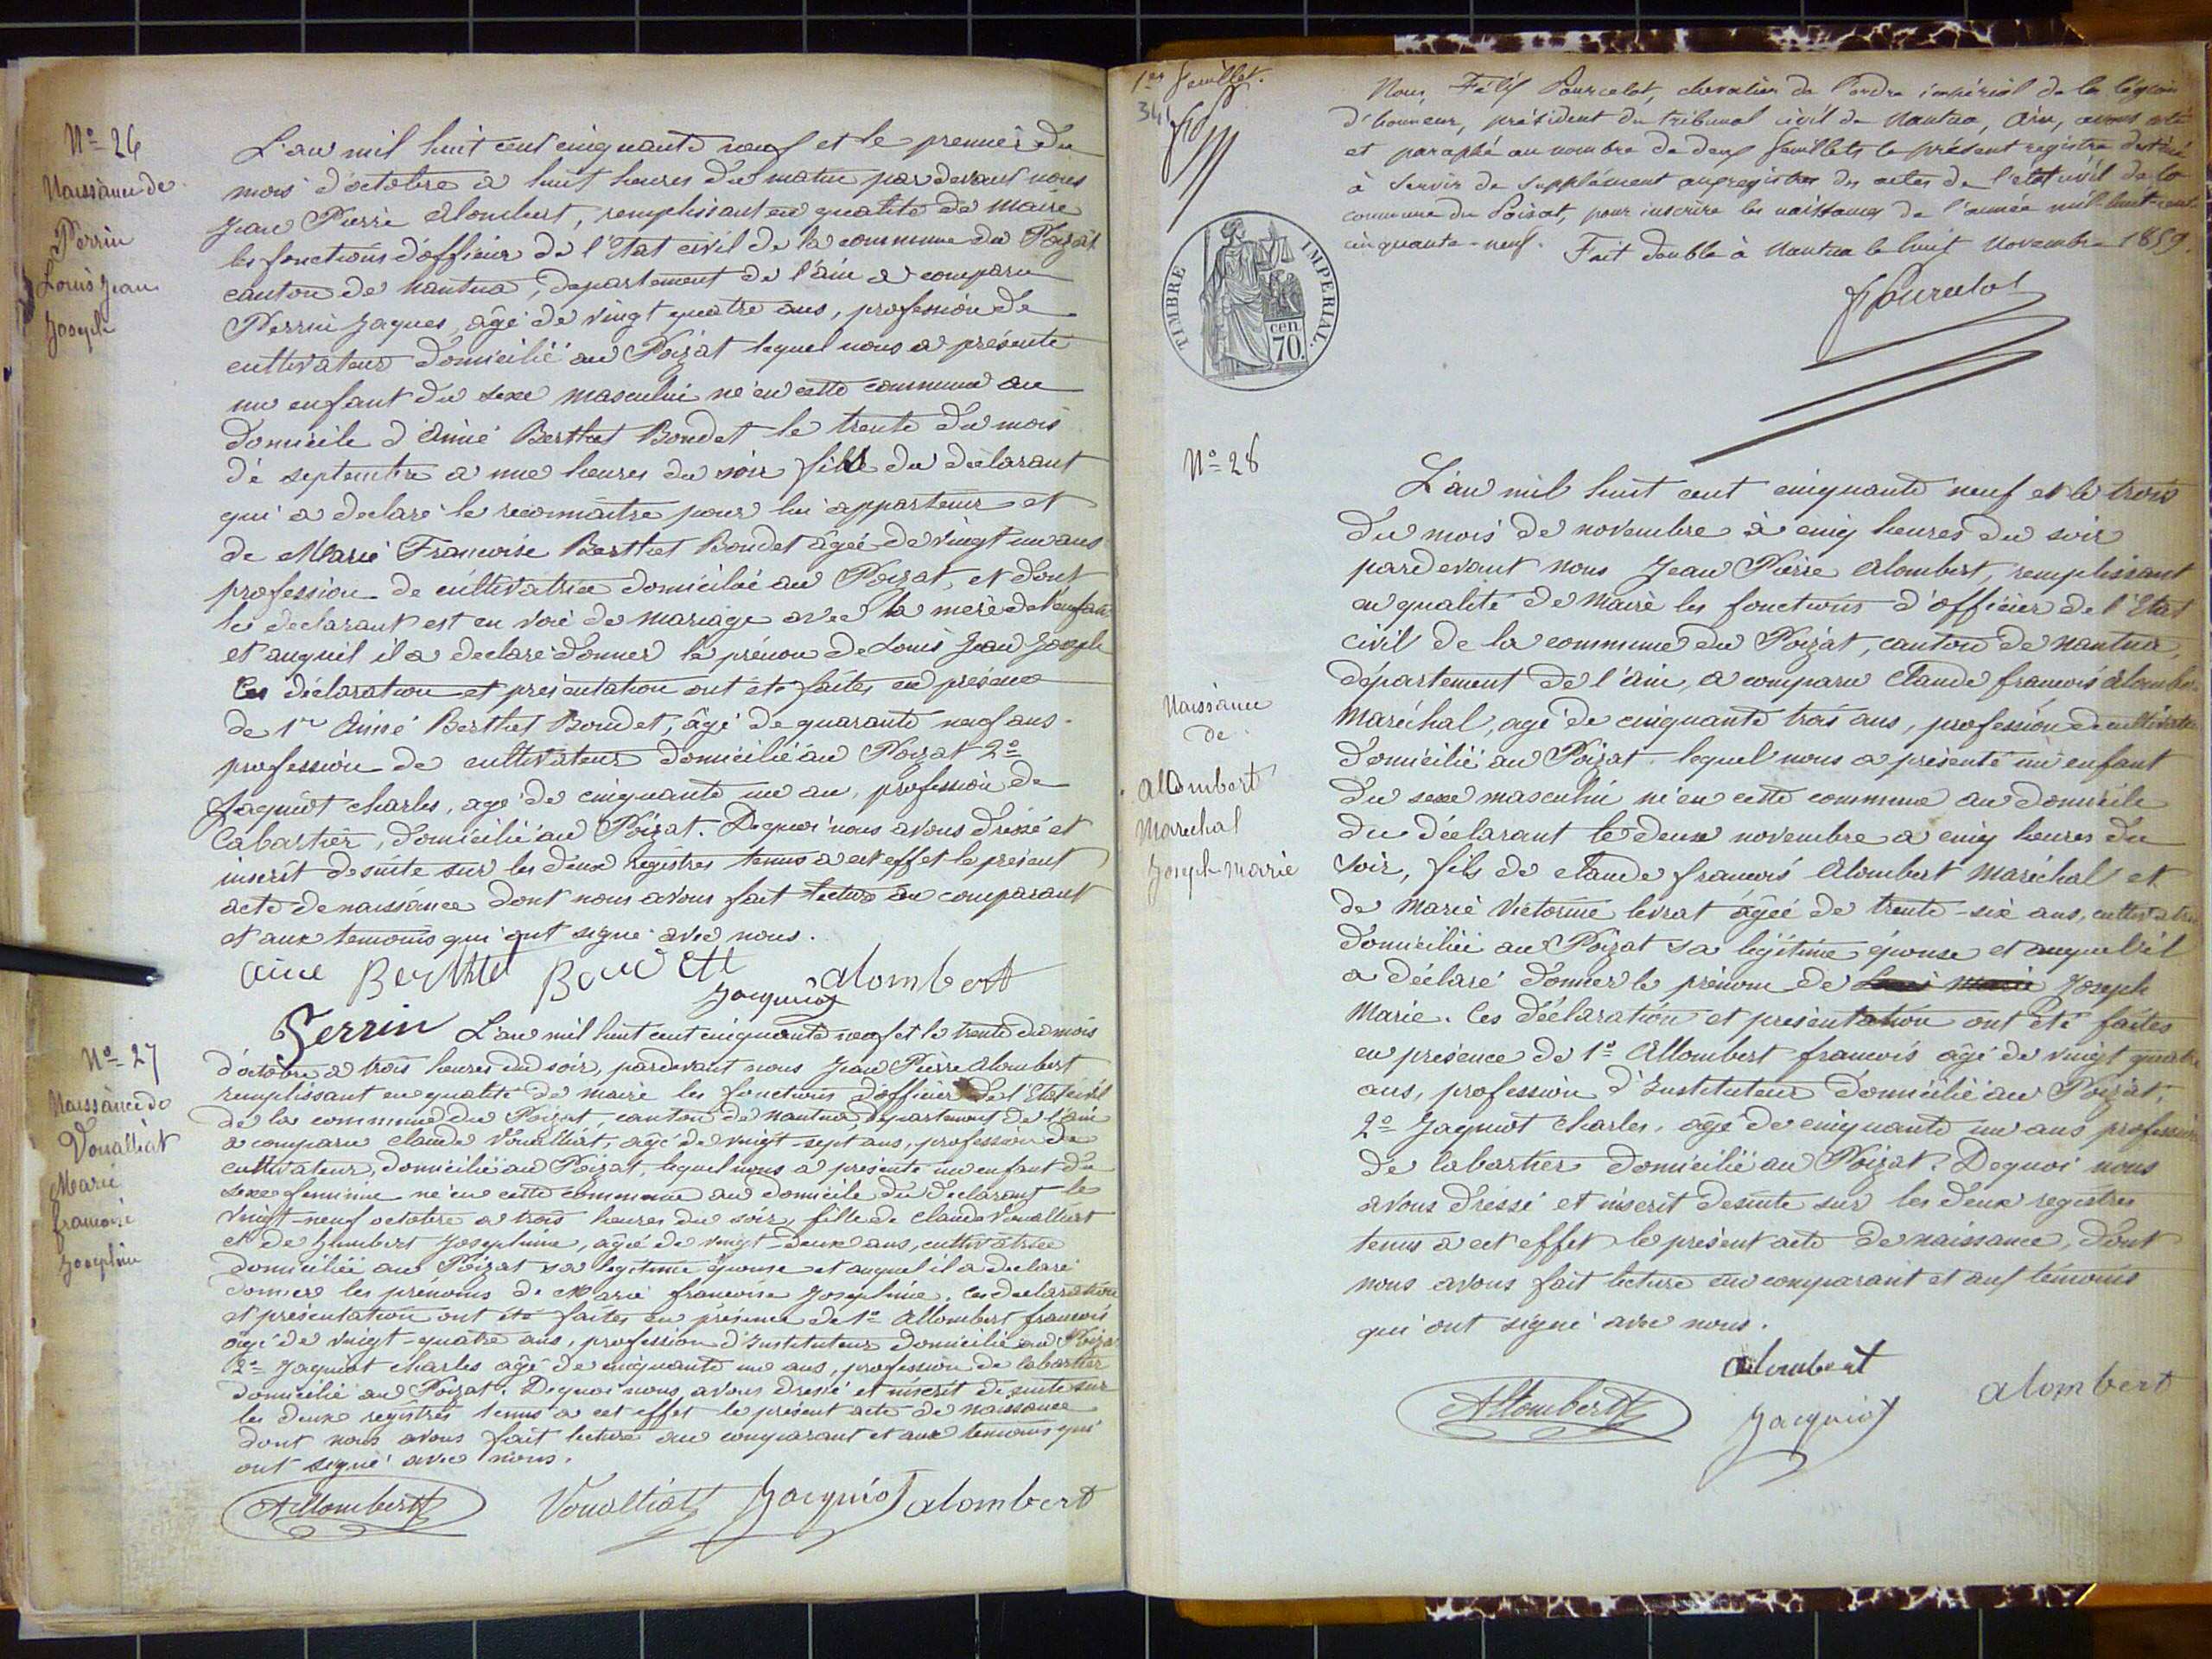 Nº 26
Naissance de
Perrin
Louis Jean
Joseph
L'an mil huit cent cinquante neuf et le premier du
mois d'octobre à huit heures du matin par devant nous
Jean Pierre Alombert, remplissant en qualité de maire
les fonctions d'officier de l'Etat civil de la commune du Poizat
canton de Nantua, departement de l'ain a comparu
Perrin Jaques, âgé de vingt quatre ans, profession de
cultivateur domicilié au Poizat lequel nous a présenté
un enfant du sexe masculin né en cette commune au
domicile d'Aimé Berthet Bondet le trente du mois
de septembre a une heures du soir fils du déclarant
qui a declaré le reconnaître pour lui appartenir et
de Marie Francoise Berthet Bondet âgée de vingt un ans
profession de cultivatrice domiciliée au Poizat, et dont
le declarant est en voie de mariage avec la mere de l'enfant
et auquel il a declaré donner le prénom de Louis Jean Joseph
Ces déclaration et présentation ont été faites en présence
de 1er Aimé Berthet Bondet, âgé de quarante neuf ans
profession de cultivateur domicilié au Poizat 2º
Jaquiot charles, agé de cinquante un an, profession de
Cabartier, domicilié au Poizat. De quoi nous avons dressé et
inscrit de suite sur les deux registres tenus a cet effet le présent
acte de naissance dont nous avons fait lecture au comparant
et aux temoins qui ont signé avec nous.
aime Berthet Boudett
Jacquiot
alombert
Perrin
Nº 27
Naissance de
Voualliat
Marie
francoise
Josephine
L'an mil huit cent cinquante neuf et le trente du mois
d'octobre a trois heures du soir, pardevant nous Jean Pierre Alombert
remplissant en qualité de maire les fonctions d'officier de l'Etat civil
de la commune du Poizat, canton de Nantua, departement de l'ain
a comparu claude Voualliat, agé de vingt sept ans, profession de
cultivateur, domicilié au Poizat, lequel nous a présenté un enfant du
sexe feminin né en cette commune au domicile du declarant le
vingt-neuf octobre a trois heures du soir, fille de claude Voualliat
et de Humbert Josephine, âgée de vingt-deux ans, cultivatrice
domiciliée au Poizat sa legitime épouse et auquel il a declaré
donner les prénoms de Marie francoise Josephine. Ces declaration
et présentation ont été faites en présence de 1º Allombert francois
âgé de vingt-quatre ans, profession d'Instituteur domicilié au Poizat
2º Jaquiot charles agé de cinquante un ans, profession de cabartier
domicilié au Poizat. De quoi nous avons dressé et inscrit de suite sur
les deux registres tenus a cet effet le présent acte de naissance
dont nous avons fait lecture au comparant et aux temoins qui
ont signé avec nous.
Allombert Voualliat Jacquiot alombert
1er feuillet.
34
Nous, Félix Pourcelot, chevalier de l'ordre impérial de la légion
d'honneur, président du tribunal civil de Nantua, Ain, avons coté
et paraphé au nombre de deux feuillets le présent registre destiné
à servir de supplément au registre des actes de l'etat civil de la
commune du Poizat, pour inscrire les naissances de l'année mil-huit-cent-
cinquante-neuf. Fait double à Nantua le huit Novembre 1859.
FPourcelot
TIMBRE IMPERIAL.
70 cen.
Nº 28
Naissance
de
Allombert
Marechal
Joseph-marie
L'an mil huit cent cinquante neuf et le trois
du mois de novembre à cinq heures du soir
pardevant nous Jean Pierre Alombert, remplissant
en qualité de Maire les fonctions d'officier de l'Etat
civil de la commune du Poizat, canton de Nantua,
département de l'ain, a comparu Claude francois Alombert
Maréchal, agé de cinquante trois ans, profession de cultivateur
domicilié au Poizat lequel nous a présenté un enfant
du sexe masculin né en cette commune au domicile
du déclarant le deux novembre a cinq heures du
soir, fils de claude francois Alombert Maréchal et
de Marie Victorine levrat âgée de trente-six ans, cultivatrice
domiciliée au Poizat sa légitime épouse et auquel il
a déclaré donner le prénom de Joseph
Marie. Ces déclaration et présentation ont été faites
en présence de 1º Allombert francois âgé de vingt quatre
ans, profession d'Instituteur domicilié au Poizat,
2º Jaquiot Charles, âgé de cinquante un ans profession
de Cabartier domicilié au Poizat. De quoi nous
avons dressé et inscrit desuite sur les deux registres
tenus a cet effet le présent acte de naissance, dont
nous avons fait lecture au comparant et aux témoins
qui ont signé avec nous.
alombert
Allombert Jacquiot alombert